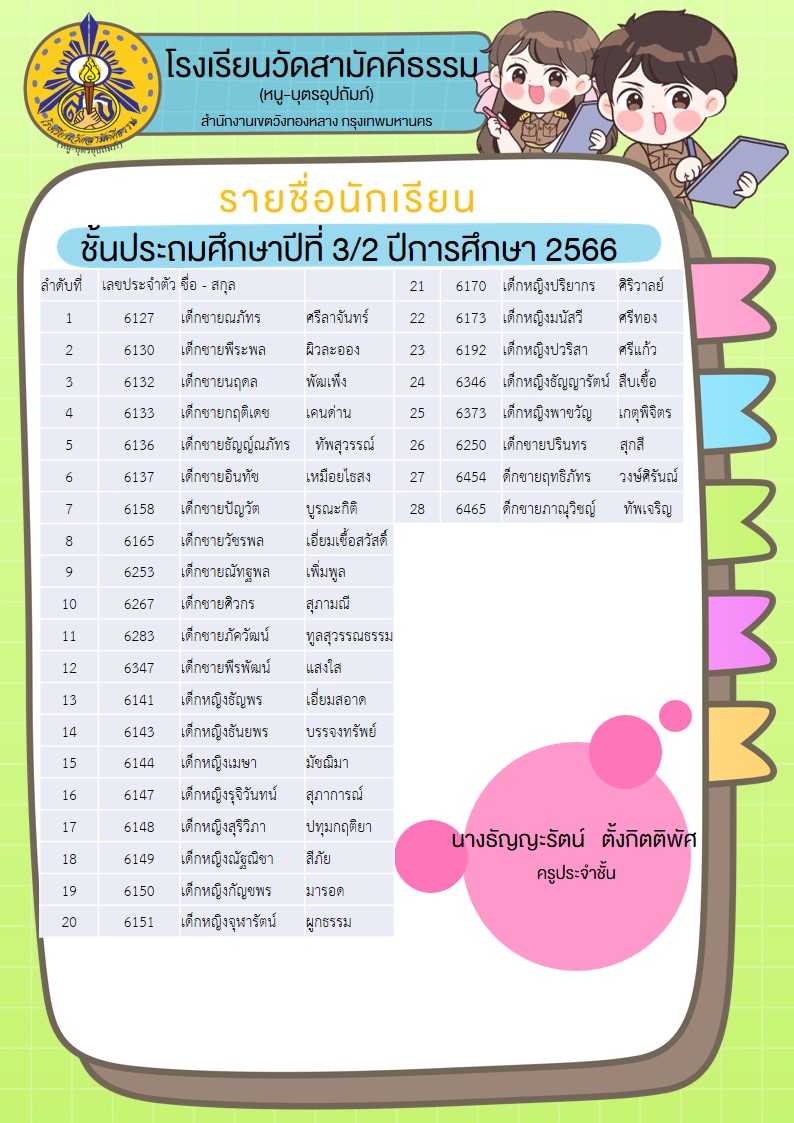 โรงเรียนวัดสามัคคีธรรม
(หนู-บุตรอุปถัมภ์)
สำนักงานเขตวังทองหลาง กรุงเทพมหานคร
(หนู-บุตรอุปถัมภ์)
รายชื่อนักเรียน
ชั้นประถมศึกษาปีที่ 3/2 ปีการศึกษา 2566
ลำดับที่ เลขประจำตัว ชื่อ - สกุล
1 6127 เด็กชายณภัทร ศรีลาจันทร์
2 6130 เด็กชายพีระพล ผิวละออง
3 6132 เด็กชายนฤดล พัฒเพ็ง
4 6133 เด็กชายกฤติเดช เคนด่าน
5 6136 เด็กชายธัญญ์ณภัทร ทัพสุวรรณ์
6 6137 เด็กชายอินทัช เหมือยไธสง
7 6158 เด็กชายปัญวัต บูรณะกิติ
8 6165 เด็กชายวัชรพล เอี่ยมเชื้อสวัสดิ์
9 6253 เด็กชายณัทฐพล เพิ่มพูล
10 6267 เด็กชายศิวกร สุภามณี
11 6283 เด็กชายภัควัฒน์ ทูลสุวรรณธรรม
12 6347 เด็กชายพีรพัฒน์ แสงใส
13 6141 เด็กหญิงธัญพร เอี่ยมสอาด
14 6143 เด็กหญิงธันยพร บรรจงทรัพย์
15 6144 เด็กหญิงเมษา มัชฌิมา
16 6147 เด็กหญิงรุจิวันทน์ สุภาการณ์
17 6148 เด็กหญิงสุริวิภา ปทุมกฤติยา
18 6149 เด็กหญิงณัฐณิชา สีภัย
19 6150 เด็กหญิงกัญชพร มารอด
20 6151 เด็กหญิงจุฬารัตน์ ผูกธรรม
21 6170 เด็กหญิงปริยากร ศิริวาลย์
22 6173 เด็กหญิงมนัสวี ศรีทอง
23 6192 เด็กหญิงปวริสา ศรีแก้ว
24 6346 เด็กหญิงธัญญารัตน์ สืบเชื้อ
25 6373 เด็กหญิงพาขวัญ เกตุพิจิตร
26 6250 เด็กชายปรินทร สุกสี
27 6454 ด็กชายฤทธิภัทร วงษ์ศิรันณ์
28 6465 ด็กชายภาณุวิชญ์ ทัพเจริญ
นางธัญญะรัตน์ ตั้งกิตติพัศ
ครูประจำชั้น